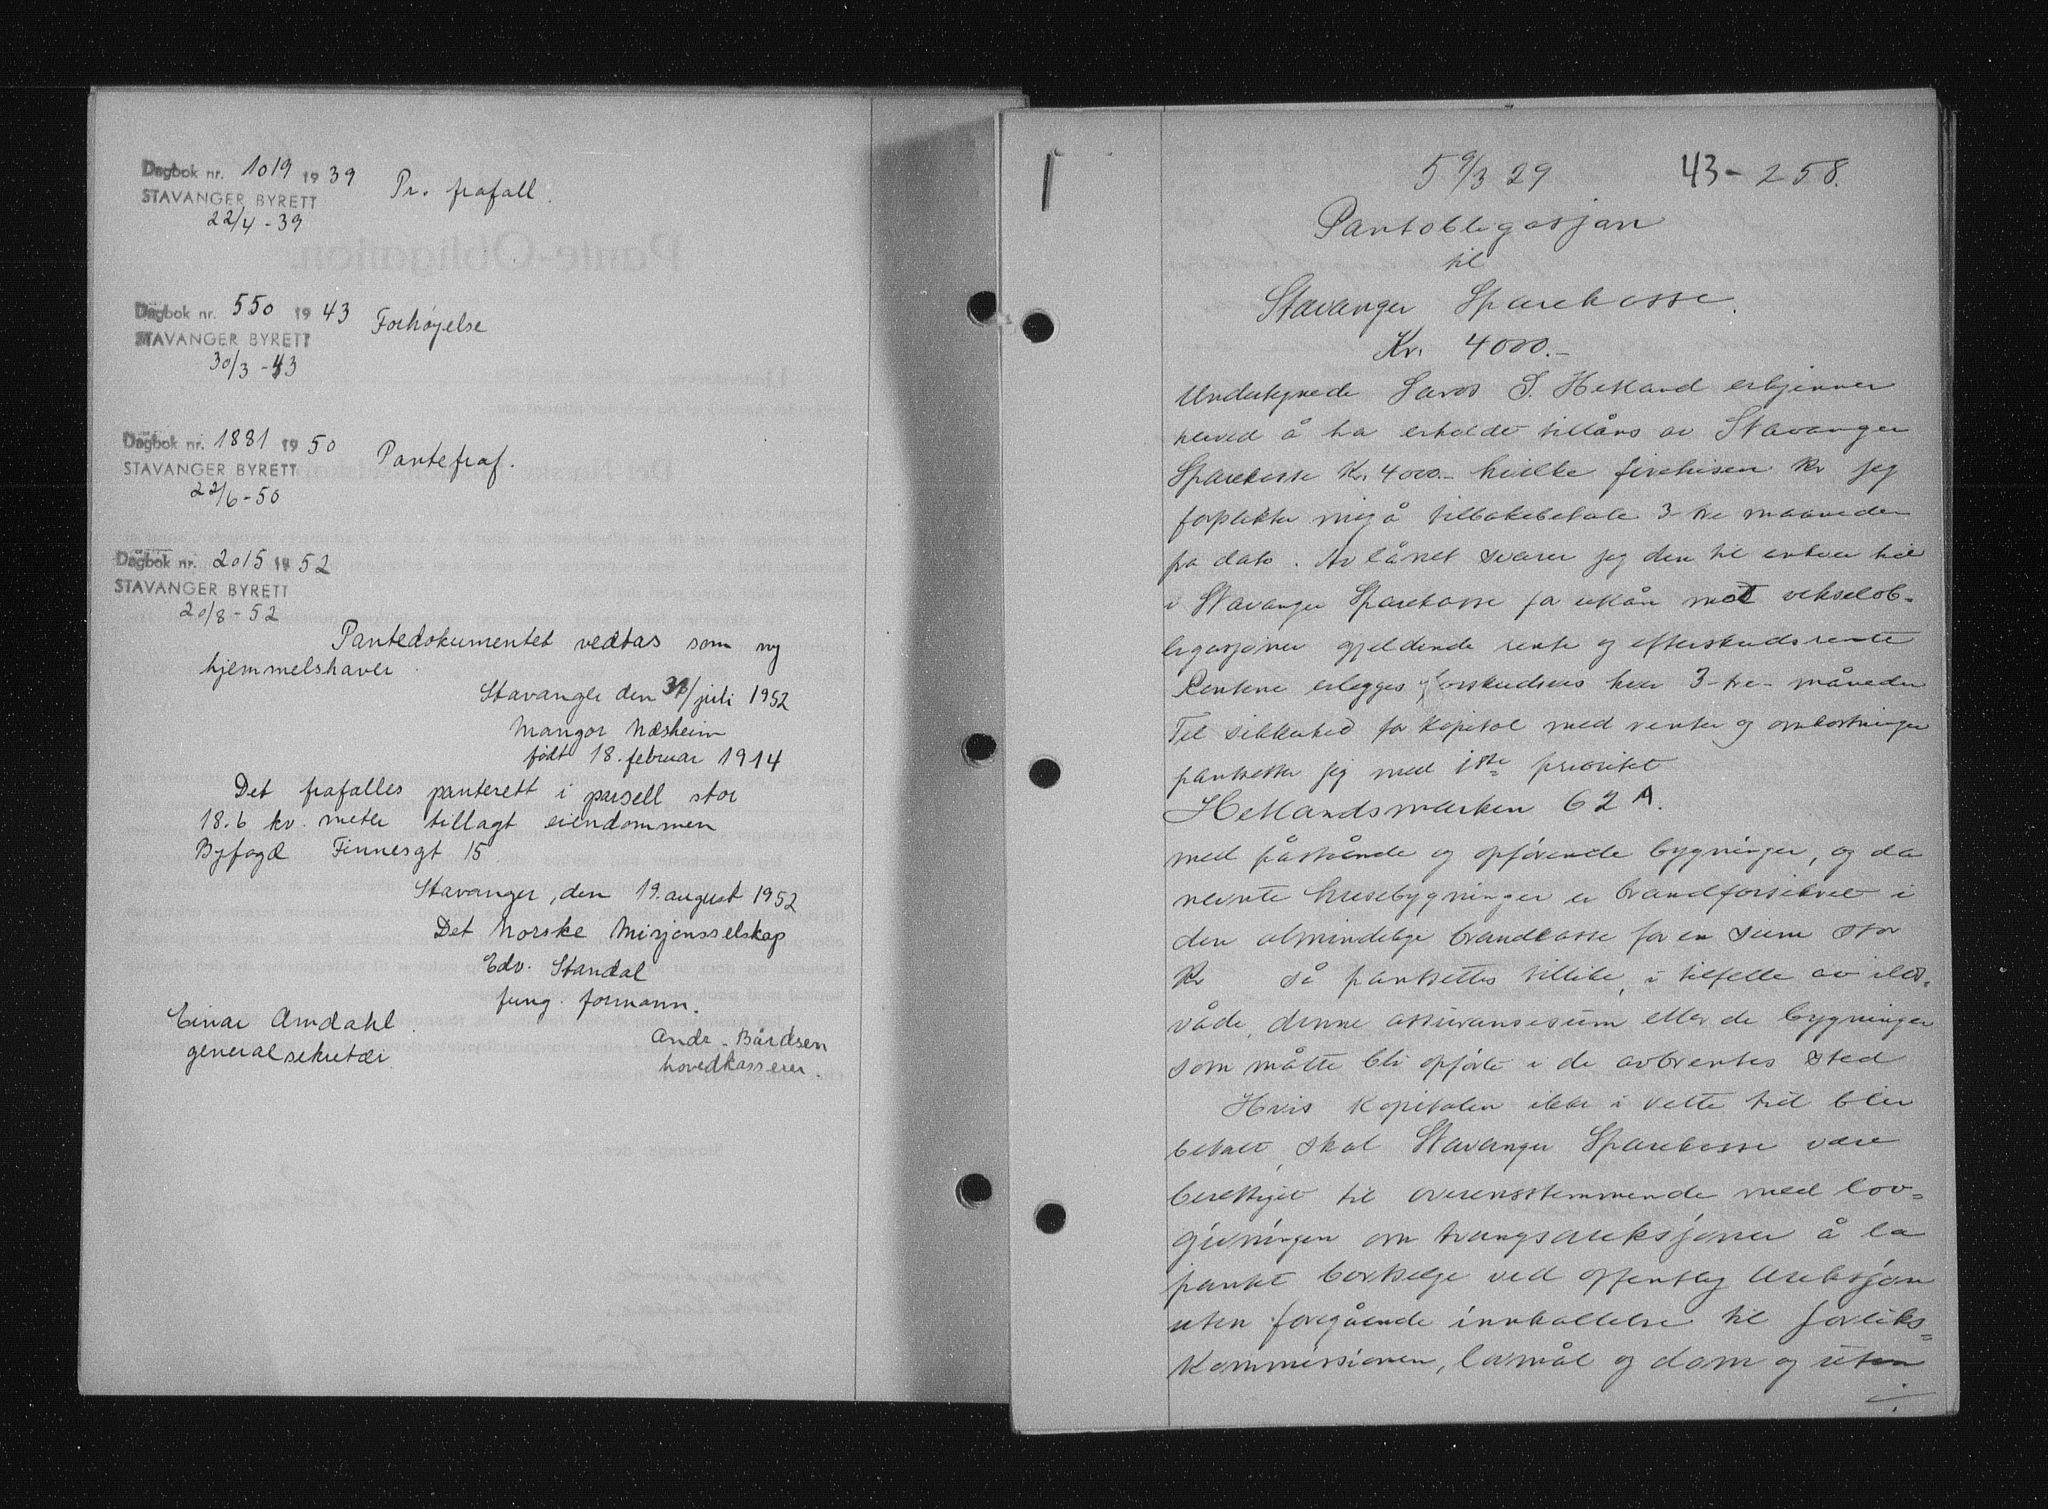 Dagbok nr. 1019 1939 Pr. frafall.
STAVANGER BYRETT
22/4 - 39
Dagbok nr. 550 1943 Forhøyelse
STAVANGER BYRETT
30/3 - 43
Dagbok nr. 1881 1950 Pantefraf.
STAVANGER BYRETT
22/6 - 50
Dagbok nr. 2015 1952
STAVANGER BYRETT
20/8 - 52
Pantedokumentet vedtas som ny
hjemmelshaver
Stavanger den 31/juli 1952
Mangor Næsheim
født 18. februar 1914
Det frafalles panterett i parsell stor
18.6 kv. meter tillagt eiendommen
Byfogd Finnesgt 15.
Stavanger, den 19. august 1952
Det Norske Misjonsselskap
Edv. Standal
fung. formann.
Einar Amdahl.
generalsekretær
Andr. Bårdsen
hovedkasserer.
5 9/3 29 43 - 258.
Pantobligasjon
til
Stavanger Sparekasse.
Kr. 4000.-
Undertegnede Lars S. Hetland erkjenner
herved å ha erholdt tillåns av Stavanger
Sparekasse Kr. 4000.- hvilke firetusen kr jeg
forplikter mig å tilbakebetale 3-tre maaneder
fra dato. Av lånet svarer jeg den til enhver tid
i Stavanger Sparekasse for utlån mot vekselob-
ligasjoner gjeldende rente og efterskudsrente
Rentene erlegges forskudsvis hver 3-tre- måneder
Til sikkerhed for kapital med renter og omkostninger
pantsetter jeg med 1ste prioritet
Hetlandsmarken 62 A.
med påstående og opførende bygninger, og da
nevnte husebygninger er brandforsikret i
den almindelige brandkasse for en sum stor
Kr så pantsettes tillike, i tilfelle av ilds-
våde, denne assuransesum eller de bygninger
som måtte bli opførte i de avbrentes sted
Hvis kapitalen ikke i rette tid blir
betalt, skal Stavanger Sparekasse være
berettiget til overensstemmende med lov-
givningen om tvangsauksjoner å la
pantet bortselge ved offentlig auksjon
uten foregående innkallelse til forliks-
kommissionen, lovmål og dom og uten